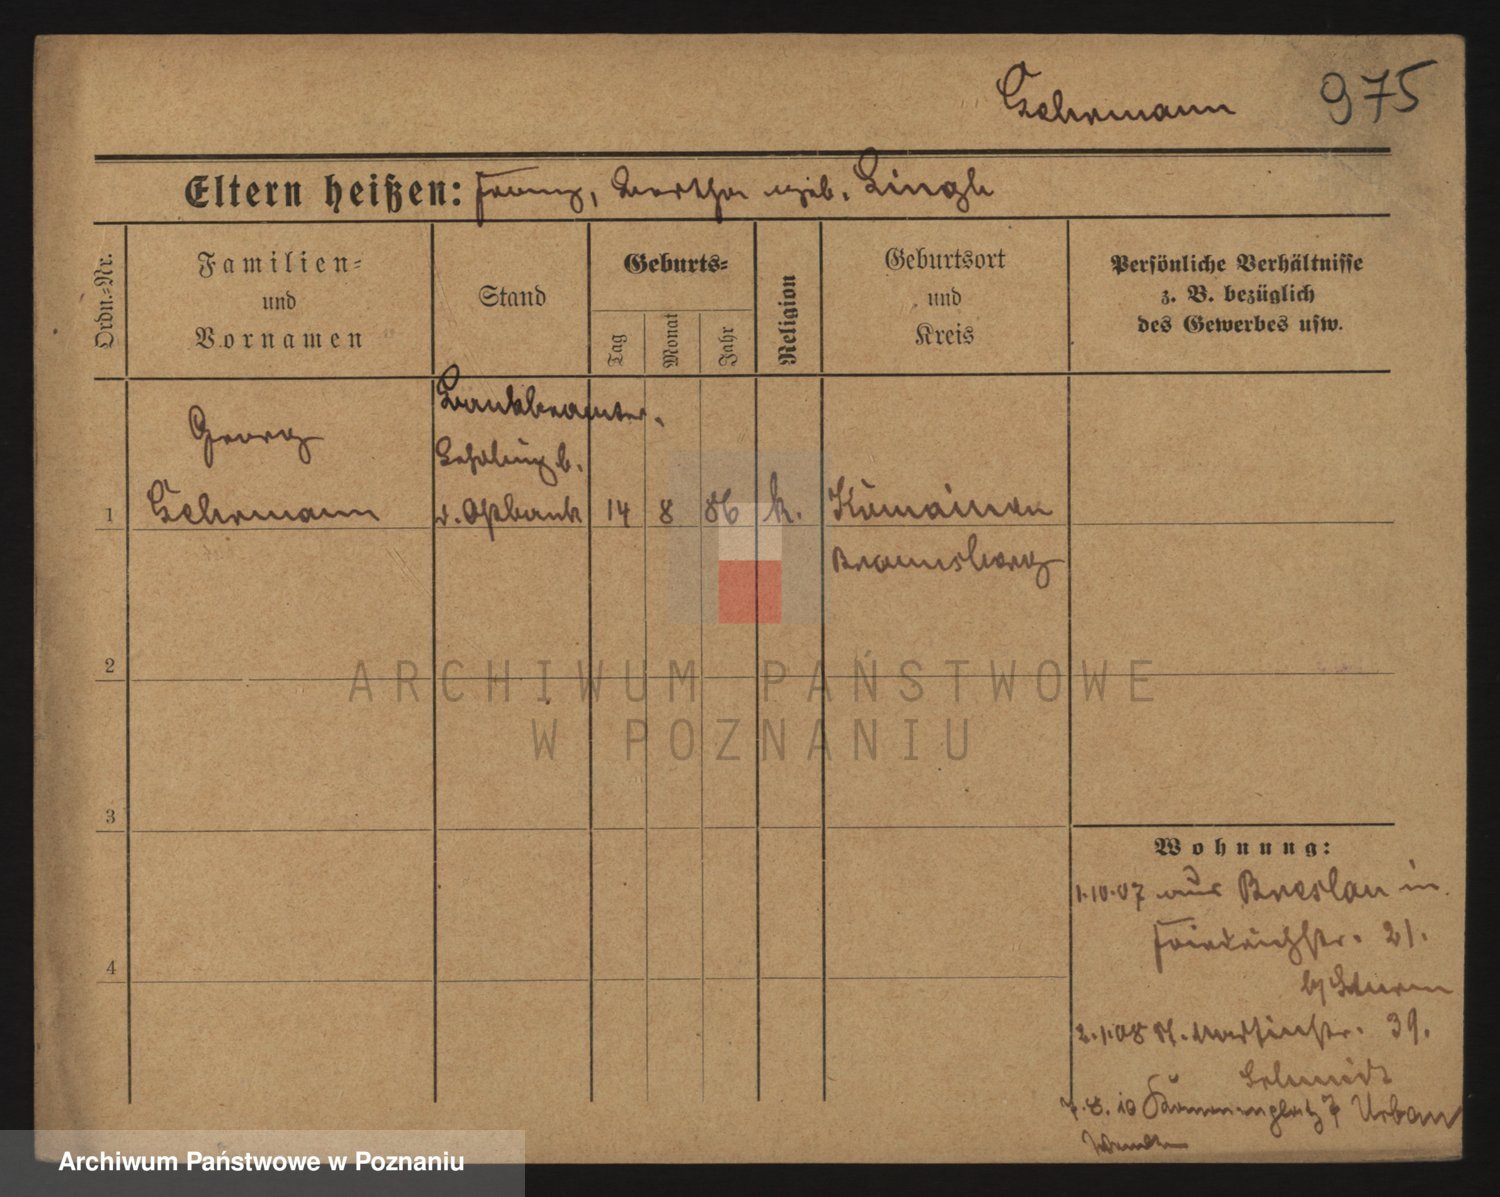 Gehrmann 975
Eltern heißen: Franz, Bertha geb. Lingk
Ordn.-Nr.
Familien-
und
Vornamen
Stand
Geburts-
Tag
Monat
Jahr
Religion
Geburtsort
und
Kreis
Persönliche Verhältnisse
z. B. bezüglich
des Gewerbes usw.
Bankbeamter.
Georg
Lehrling b.
1 Gehrmann d. Ostbank 14 8 86 k. Komainen
Braunsberg
2
3
4
Wohnung:
1.10.07 aus Breslau in
Friedrichstr. 21.
b/ Sturm
2.1.08 St. Martinstr. 39.
Schmidt
7.8.10 7 Urban
ARCHIWUM PAŃSTWOWE
W POZNANIU
Archiwum Państwowe w Poznaniu